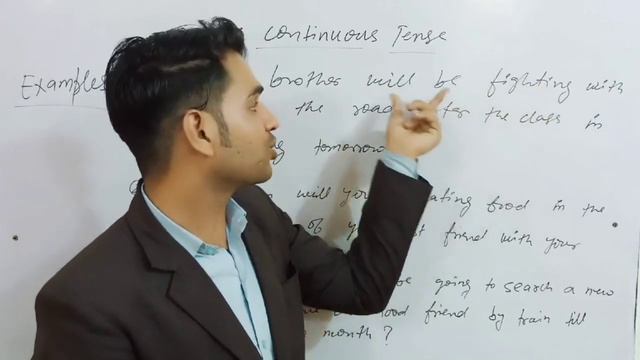 Continuous Tense
Examples brother will be fighting with
the road after the class in
tomorrow
will you eating food in the
of friend with your
be going to search a new
friend by train till
month?